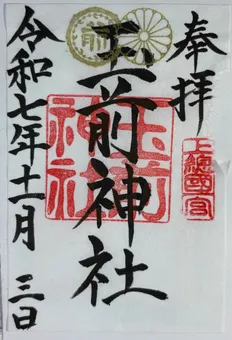 奉拝
上總國一宮
玉前神社
玉前
神社
令和七年十一月 三日